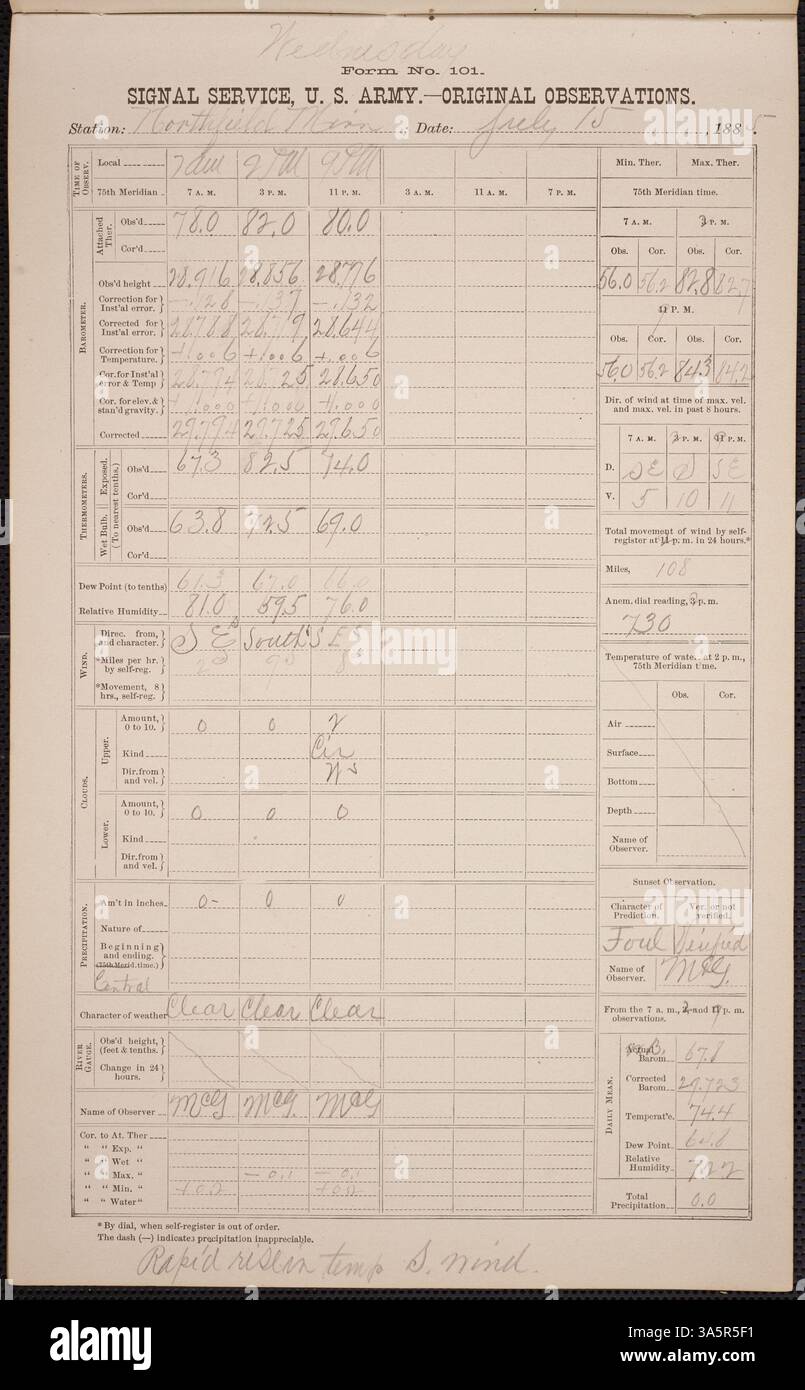 Wednesday
Form No. 101.
SIGNAL SERVICE, U. S. ARMY.—ORIGINAL OBSERVATIONS.
Station: Northfield Minn Date: July 15, 1885.
TIME OF OBSERV.
Local 7 am 2 PM 9 PM
75th Meridian 7 A. M. 3 P. M. 11 P. M. 3 A. M. 11 A. M. 7 P. M.
BAROMETER.
Attached Ther.
Obs'd 78.0 82.0 80.0
Cor'd
Obs'd height 28.916 28.856 28.776
Correction for Inst'al error. -.128 -.137 -.132
Corrected for Inst'al error. 28.788 28.719 28.644
Correction for Temperature. +.006 +.006 +.006
Cor. for Inst'al error & Temp 28.794 28.725 28.650
Cor. for elev. & stan'd gravity. +1.000 +1.000 +1.000
Corrected 29.794 29.725 29.650
THERMOMETERS.
(To nearest tenths.)
Exposed.
Obs'd 67.3 82.5 74.0
Cor'd
Wet Bulb.
Obs'd 63.8 72.5 69.0
Cor'd
Dew Point (to tenths) 61.3 67.0 66.0
Relative Humidity 81.0 59.5 76.0
WIND.
Direc. from, and character. SE South SE
*Miles per hr. by self-reg. 2 9 8
*Movement, 8 hrs., self-reg.
CLOUDS.
Upper.
Amount, 0 to 10. 0 0 2
Kind Cir
Dir. from and vel. W
Lower.
Amount, 0 to 10. 0 0 0
Kind
Dir. from and vel.
PRECIPITATION.
Am't in inches 0- 0 0
Nature of
Beginning and ending. (75th Merid. time.)
Central
Character of weather Clear Clear Clear
RIVER GAUGE.
Obs'd height, (feet & tenths.)
Change in 24 hours.
Name of Observer McG McG. McG
Cor. to At. Ther
" " Exp. "
" " Wet "
" " Max. " -0.1 -0.1
" " Min. " +0.2 +0.2
" " Water "
*By dial, when self-register is out of order.
The dash (—) indicates precipitation inappreciable.
Rapid rise in temp S. wind.
Min. Ther. Max. Ther.
75th Meridian time.
7 A. M. 3 P. M.
Obs. Cor. Obs. Cor.
56.0 56.2 82.8 82.7
11 P. M.
Obs. Cor. Obs. Cor.
56.0 56.2 84.3 84.2
Dir. of wind at time of max. vel. and max. vel. in past 8 hours.
7 A. M. 3 P. M. 11 P. M.
D. SE S SE
V. 5 10 11
Total movement of wind by self-register at 11 p. m. in 24 hours.*
Miles, 108
Anem. dial reading, 3 p. m.
730
Temperature of water at 2 p. m., 75th Meridian time.
Obs. Cor.
Air
Surface
Bottom
Depth
Name of Observer.
Sunset Observation.
Character of Prediction. Ver. or not verified.
Foul Verified
Name of Observer. McG.
From the 7 a. m., 3, and 11 p. m. observations.
DAILY MEAN.
Actual Barom. 67.8
Corrected Barom. 29.723
Temperat'e. 74.4
Dew Point
Relative Humidity 72.2
Total Precipitation 0.0
alamy
Image ID: 3A5R5F1
www.alamy.com